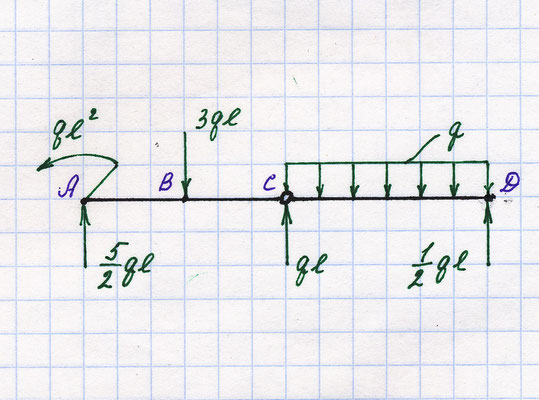 ql²
3ql
q
A
B
C
D
5/2 ql
ql
1/2 ql